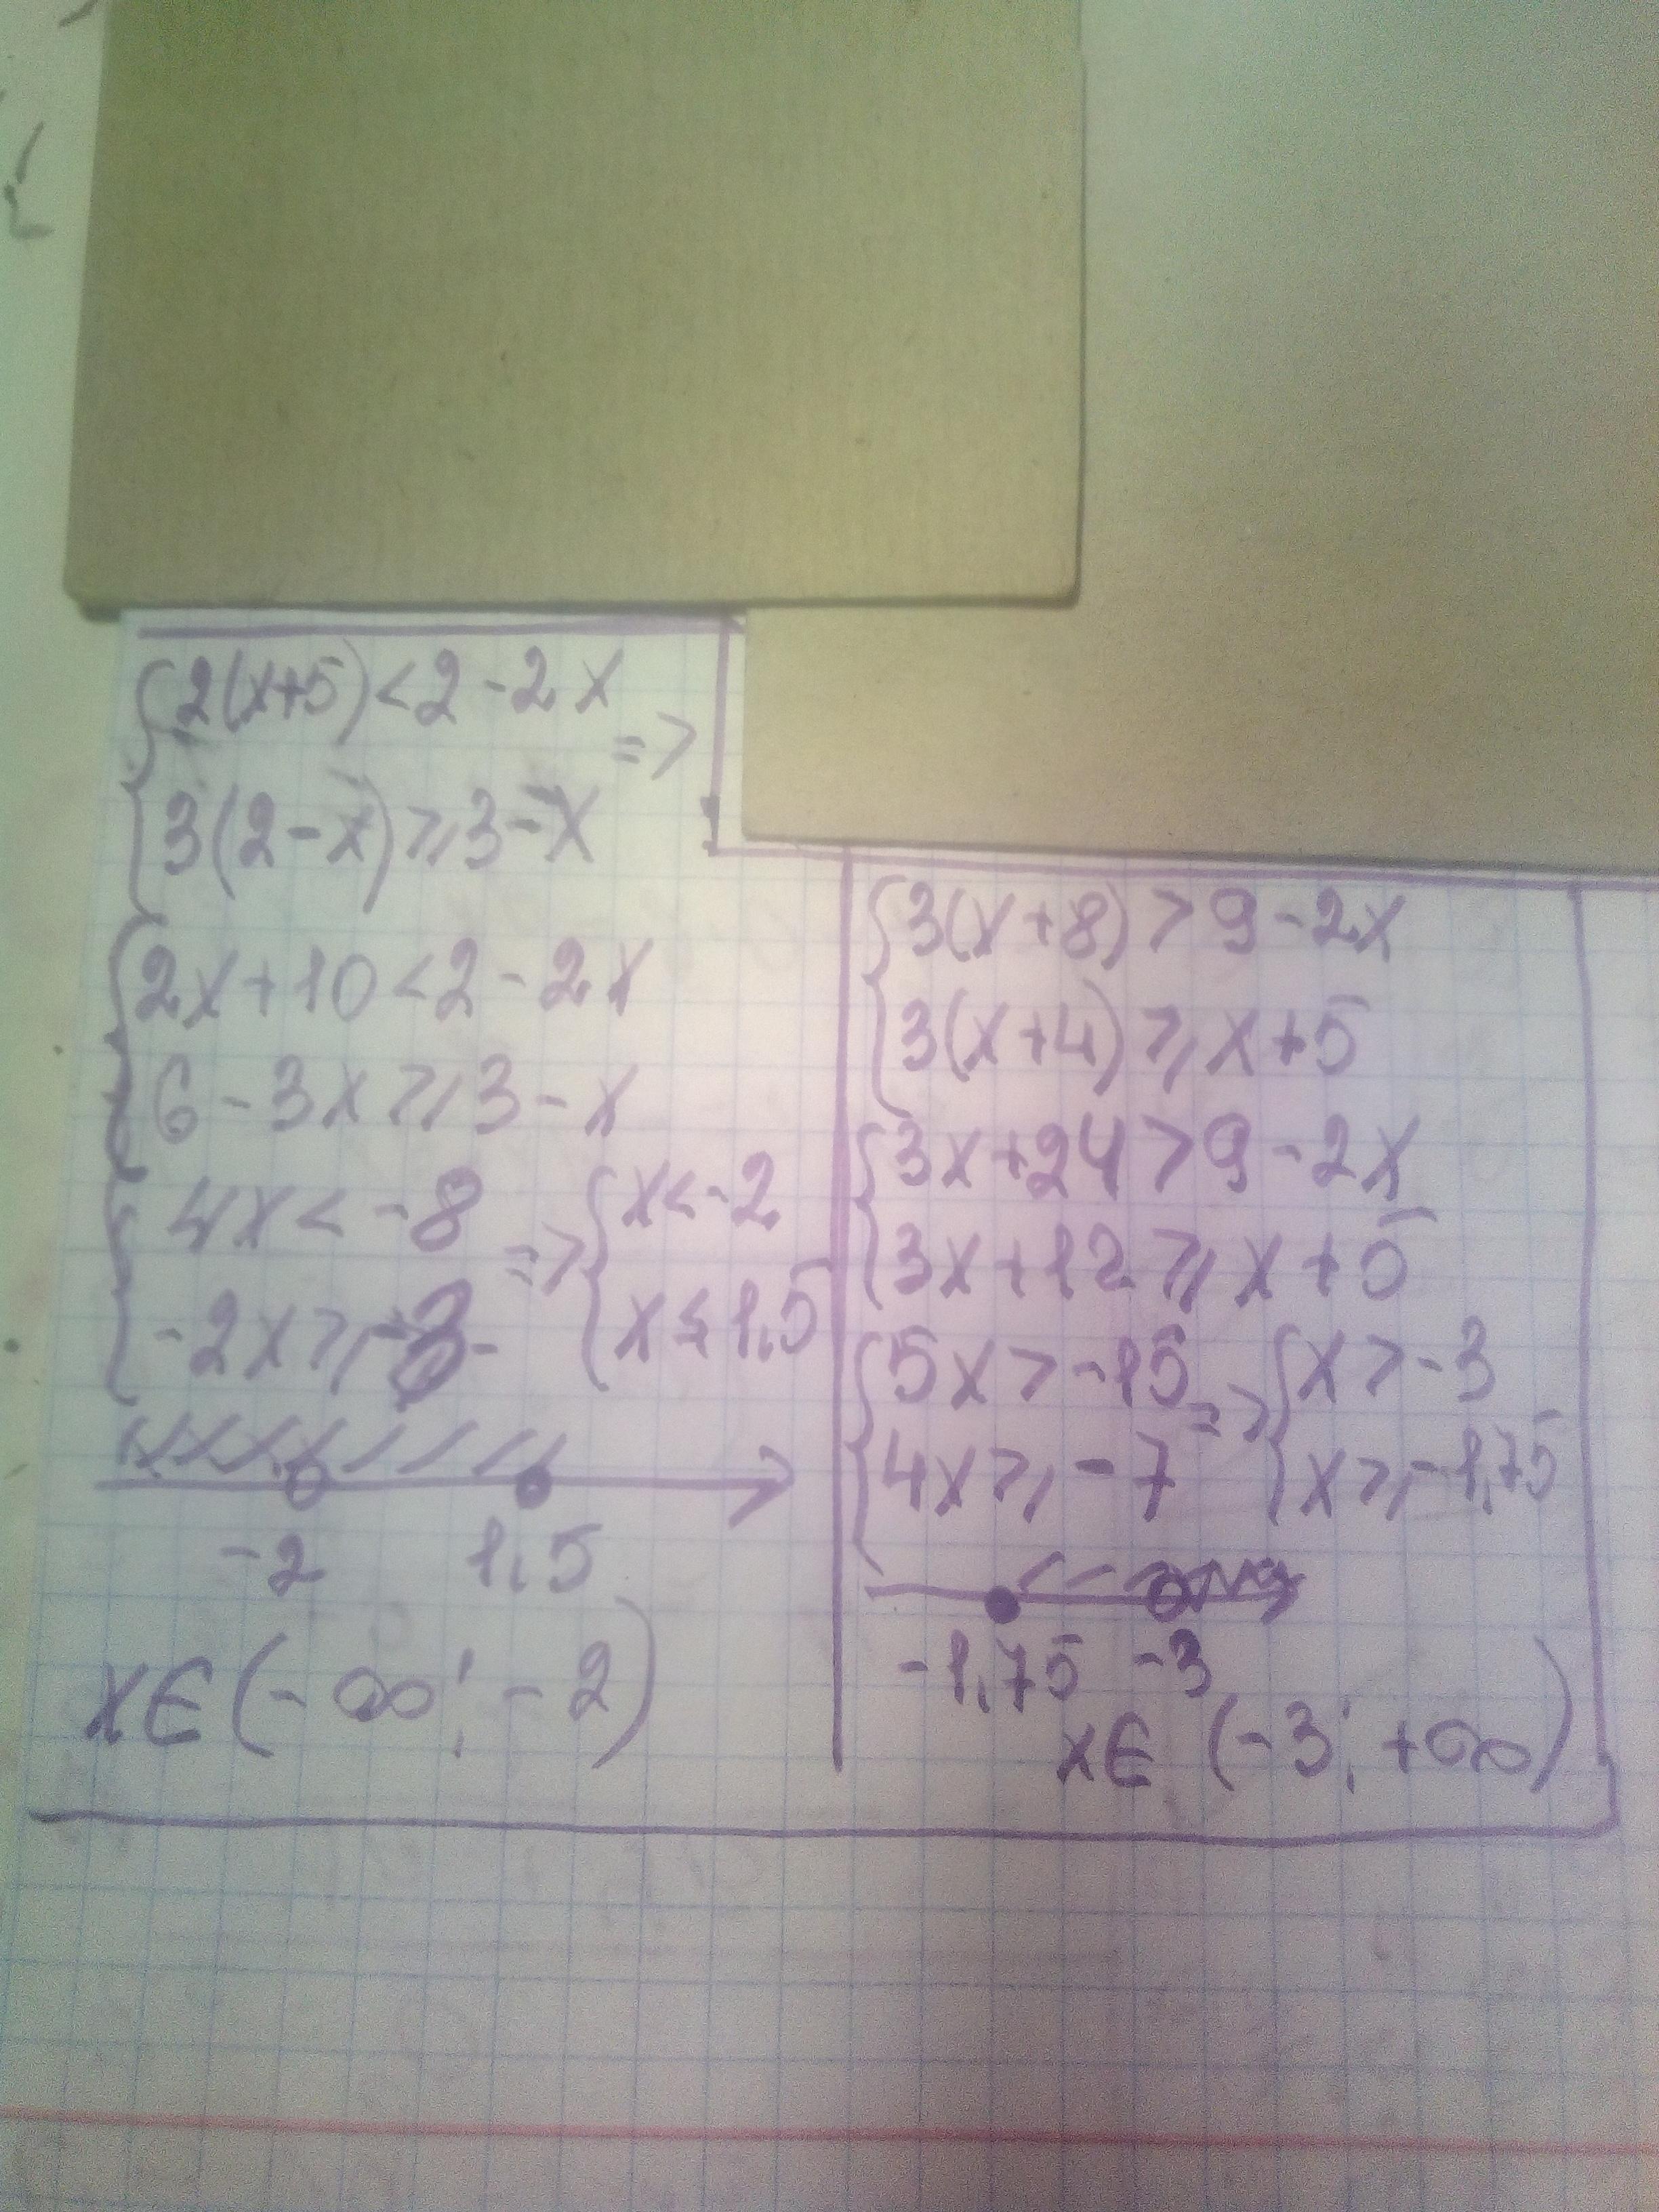 {2(x+5)<2-2x
=>
{3(2-x)⩾3-x
{2x+10<2-2x
{6-3x⩾3-x
{4x<-8 => {x<-2
{-2x⩾-3 {x≤1,5
-2 1,5
x∈(-∞;-2)
{3(x+8)>9-2x
{3(x+4)⩾x+5
{3x+24>9-2x
{3x+12⩾x+5
{5x>-15 => {x>-3
{4x⩾-7 {x⩾-1,75
-1,75 -3
x∈(-3;+∞)